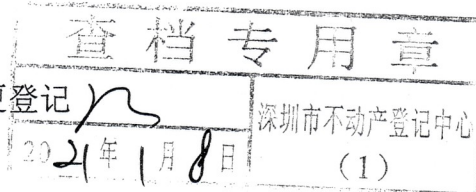 查档专用章
更登记
深圳市不动产登记中心
2021年1月8日
（1）